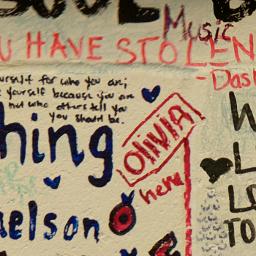 Music
U HAVE STOLEN
- Dash
urself for who you are;
yourself because you are
not who others tell you
you should be.
OLIVIA
hing
here
elson
L
TO